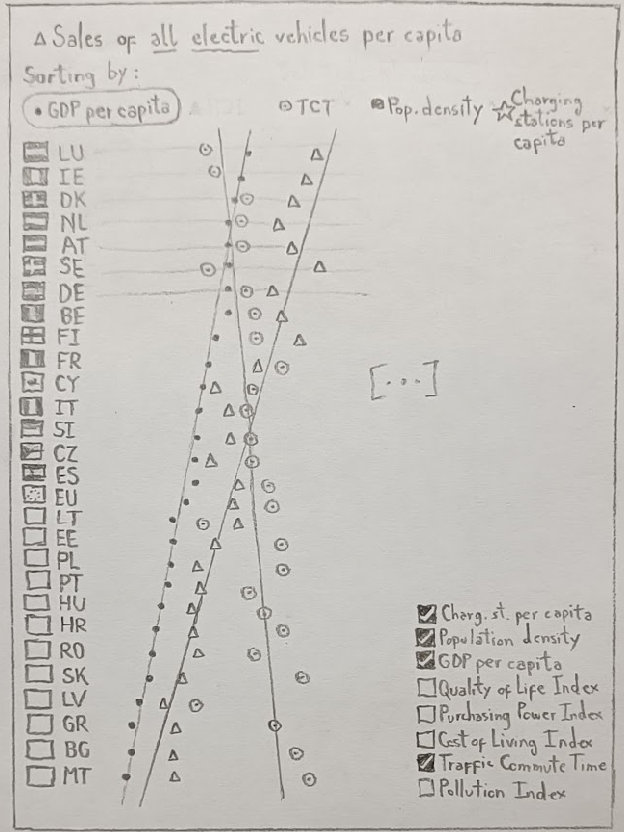 △ Sales of all electric vehicles per capita
Sorting by:
• GDP per capita
⊙ TCT
Pop. density
☆ Charging
stations per
capita
LU
IE
DK
NL
AT
SE
DE
BE
FI
FR
CY
IT
SI
CZ
ES
EU
LT
EE
PL
PT
HU
HR
RO
SK
LV
GR
BG
MT
[...]
Charg. st. per capita
Population density
GDP per capita
Quality of Life Index
Purchasing Power Index
Cost of Living Index
Traffic Commute Time
Pollution Index